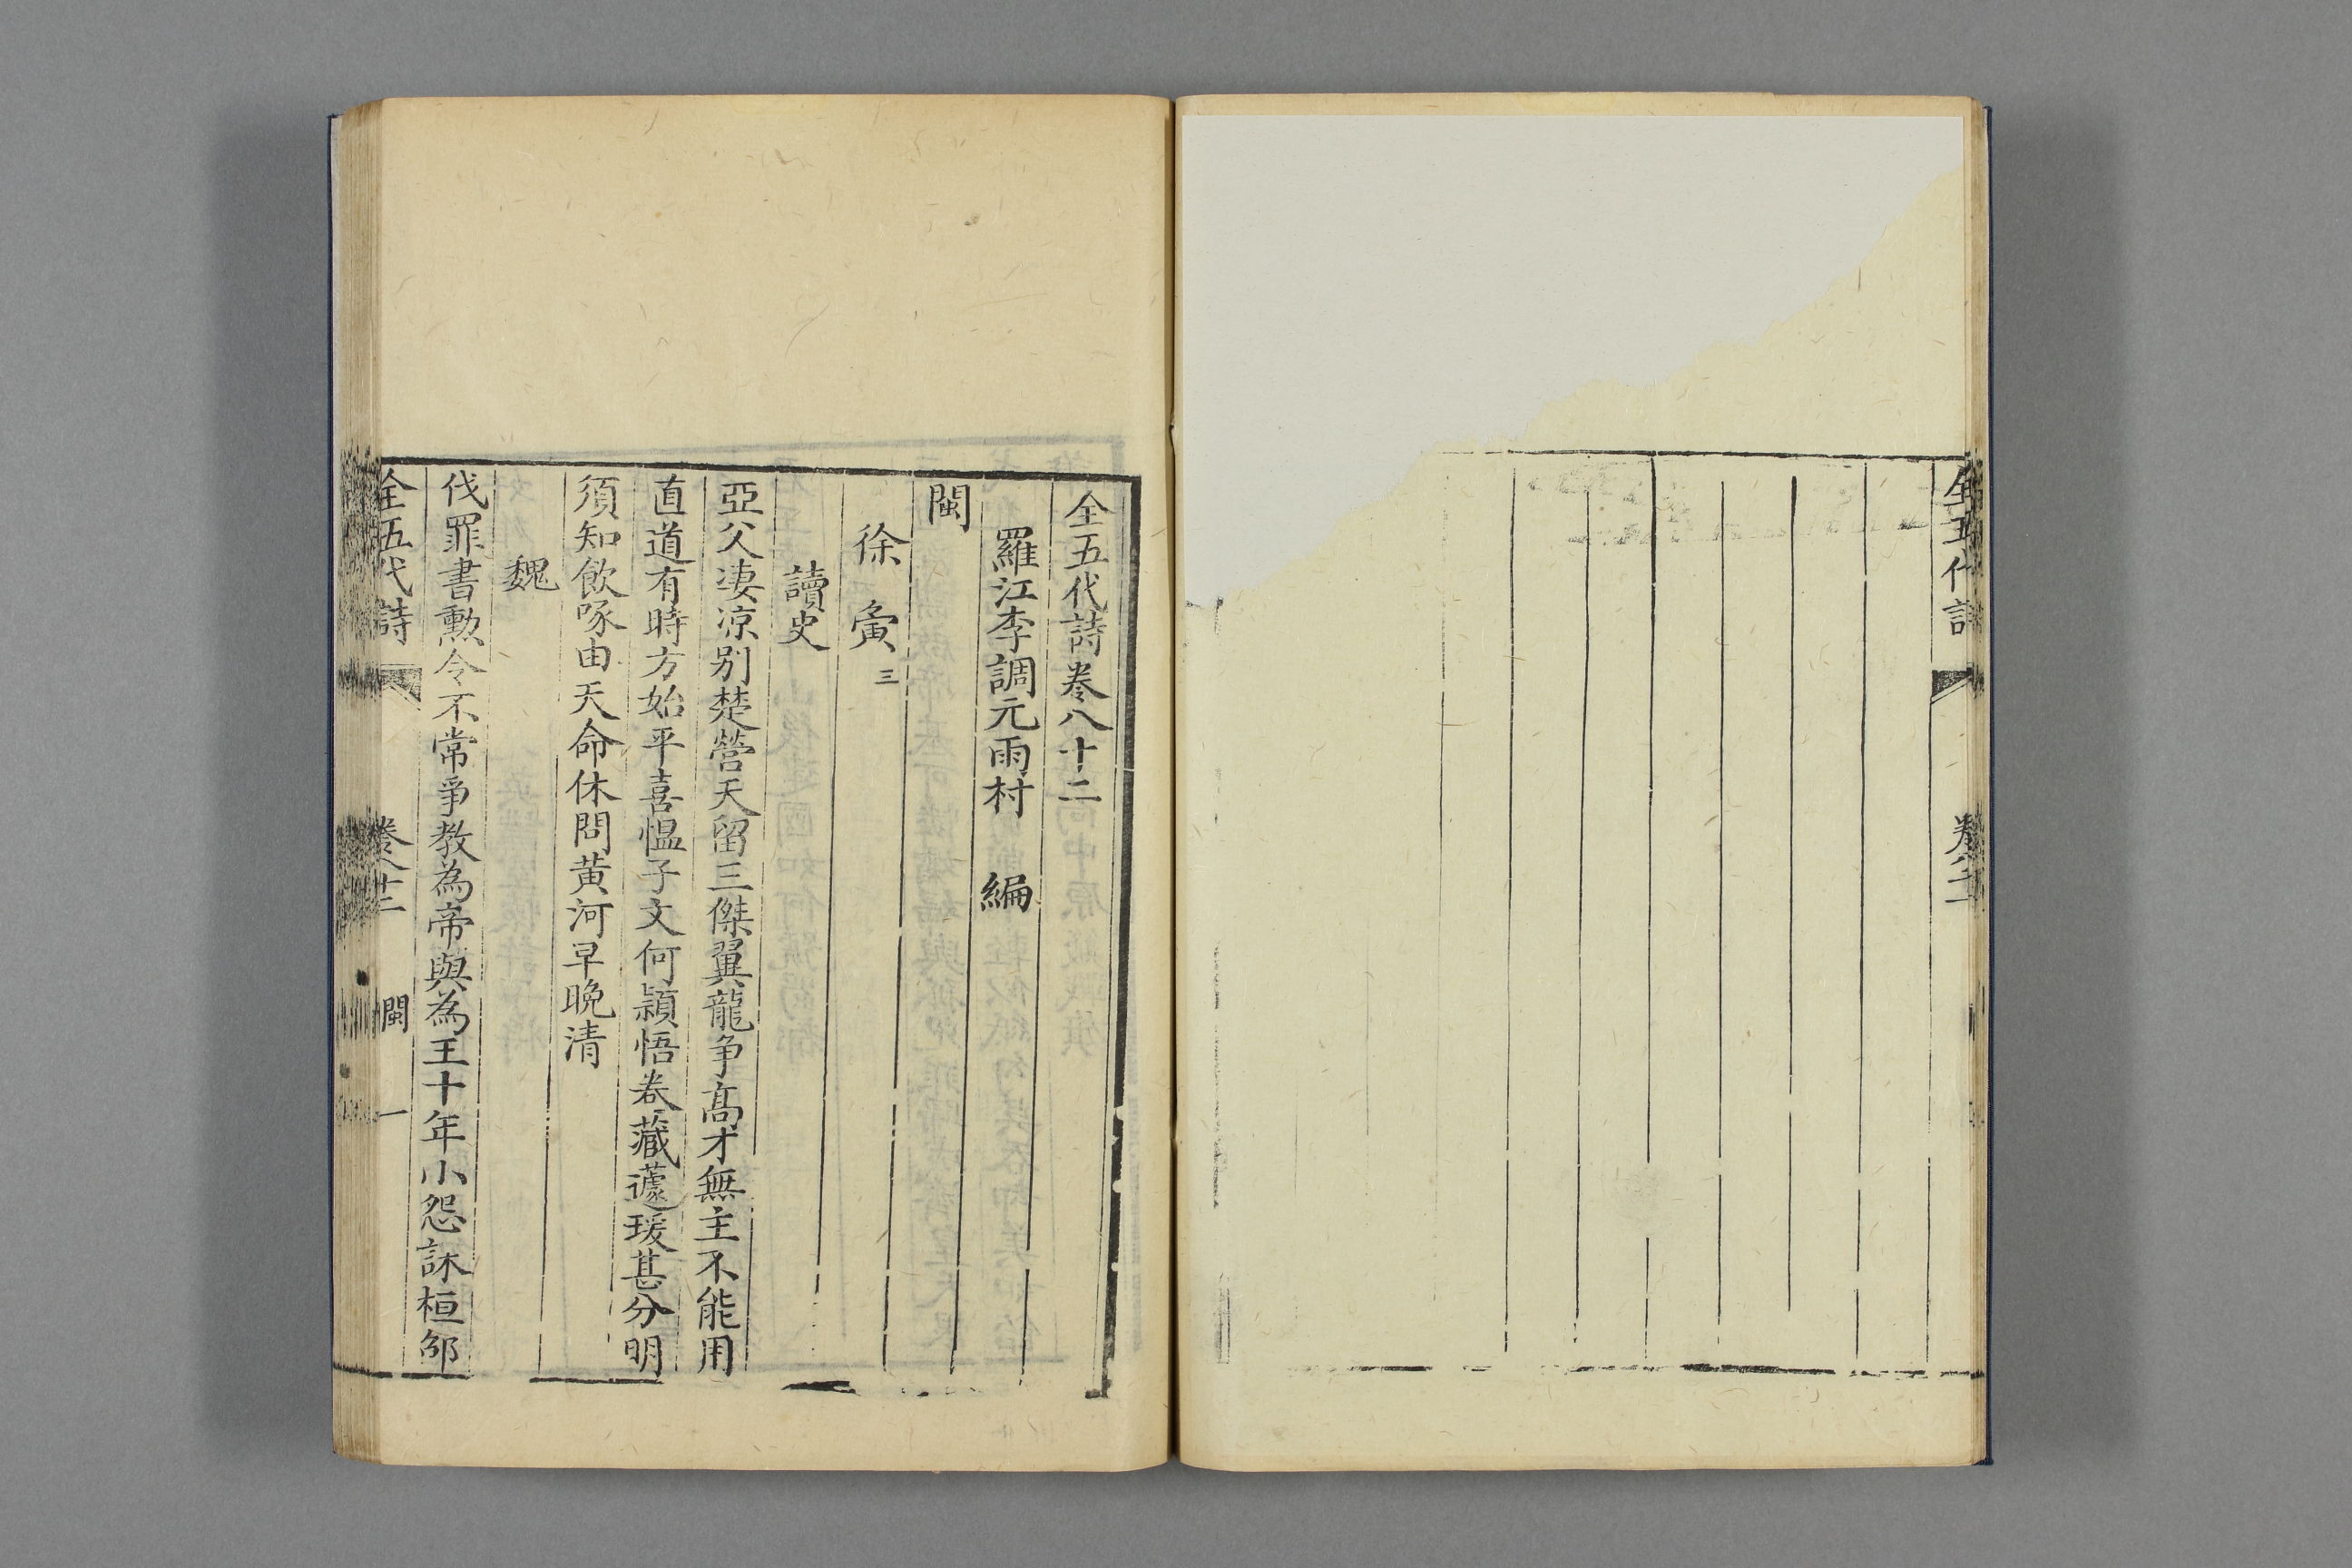 全五代詩
全五代詩卷八十二
羅江李調元雨村 編
閩
徐 夤 三
讀史
亞父凄凉别楚營天留三傑翼龍争髙才無主不能用
直道有時方始平喜愠子文何頴悟卷藏蘧瑗甚分明
須知飲啄由天命休問黄河早晩清
魏
伐罪書勲令不常爭教為帝與為王十年小怨誅桓邵
全五代詩 卷八十二 閩 一